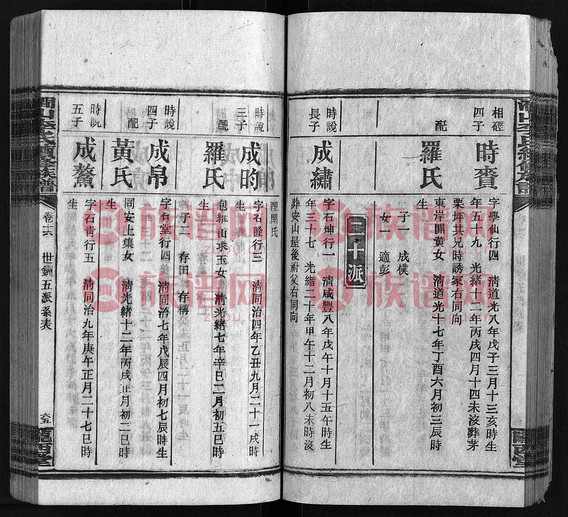 相經四子
時賚
字學仙行四 清道光八年戊子三月十三亥時生
年五十九 光緒十二年丙戌四月十四未沒葬茅
栗坪其兄時誘冢右同向
配
羅氏
東岸開黃女 清道光十七年丁酉六月初三辰時
生
子一 成僕
女一 適彭
三十派
時說長子
成繡
字石坤行一 清咸豐八年戊午十月十五午時生
年三十七 光緒二十年甲午十二月初八未時沒
葬安山屋後祔父右同向
配
閻氏
時說三子
成畇
字石隆行三 清同治四年乙丑九月二十一戌時
生
配
羅氏
包稚山求玉女 清光緒七年辛巳二月初五巳時
生
子二 存田 存稱
時說四子
成帛
字石堂行四 清同治七年戊辰四月初七辰時生
配
黃氏
同安上集女 清光緒十二年丙戌正月初二巳時
生
時說五子
成鰲
字石青行五 清同治九年庚午正月二十七巳時
生
卷二六 世編五派系表
族谱网